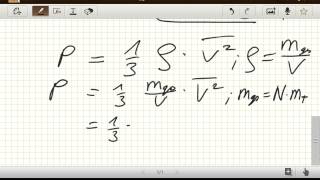 P = 1/3 ρ · \overline{v²} ; ρ = m_{ges}/V
P = 1/3 m_{ges}/V · \overline{v²} ; m_{ges} = N · m_T
= 1/3 ·